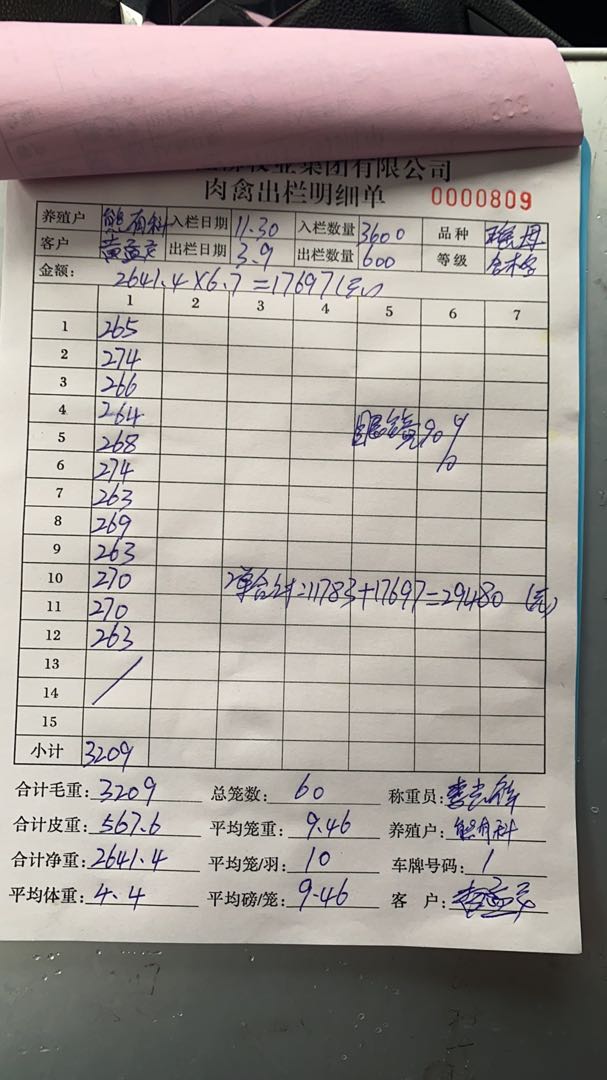 集团有限公司
肉禽出栏明细单 0000809
养殖户 熊有科 入栏日期 11.30 入栏数量 3600 品种
客户 黄孟交 出栏日期 3.9 出栏数量 600 等级 合格
金额: 2641.4×6.7=17697(元)
1 2 3 4 5 6 7
1 265
2 274
3 266
4 264
眼镜90%
5 268
6 274
7 263
8 269
9 263
10 270
2单合计=11783+17697=29480(元)
11 270
12 263
13
14
15
小计 3209
合计毛重: 3209 总笼数: 60 称重员:
合计皮重: 567.6 平均笼重: 9.46 养殖户: 熊有科
合计净重: 2641.4 平均笼/羽: 10 车牌号码: 1
平均体重: 4.4 平均磅/笼: 9.46 客户: